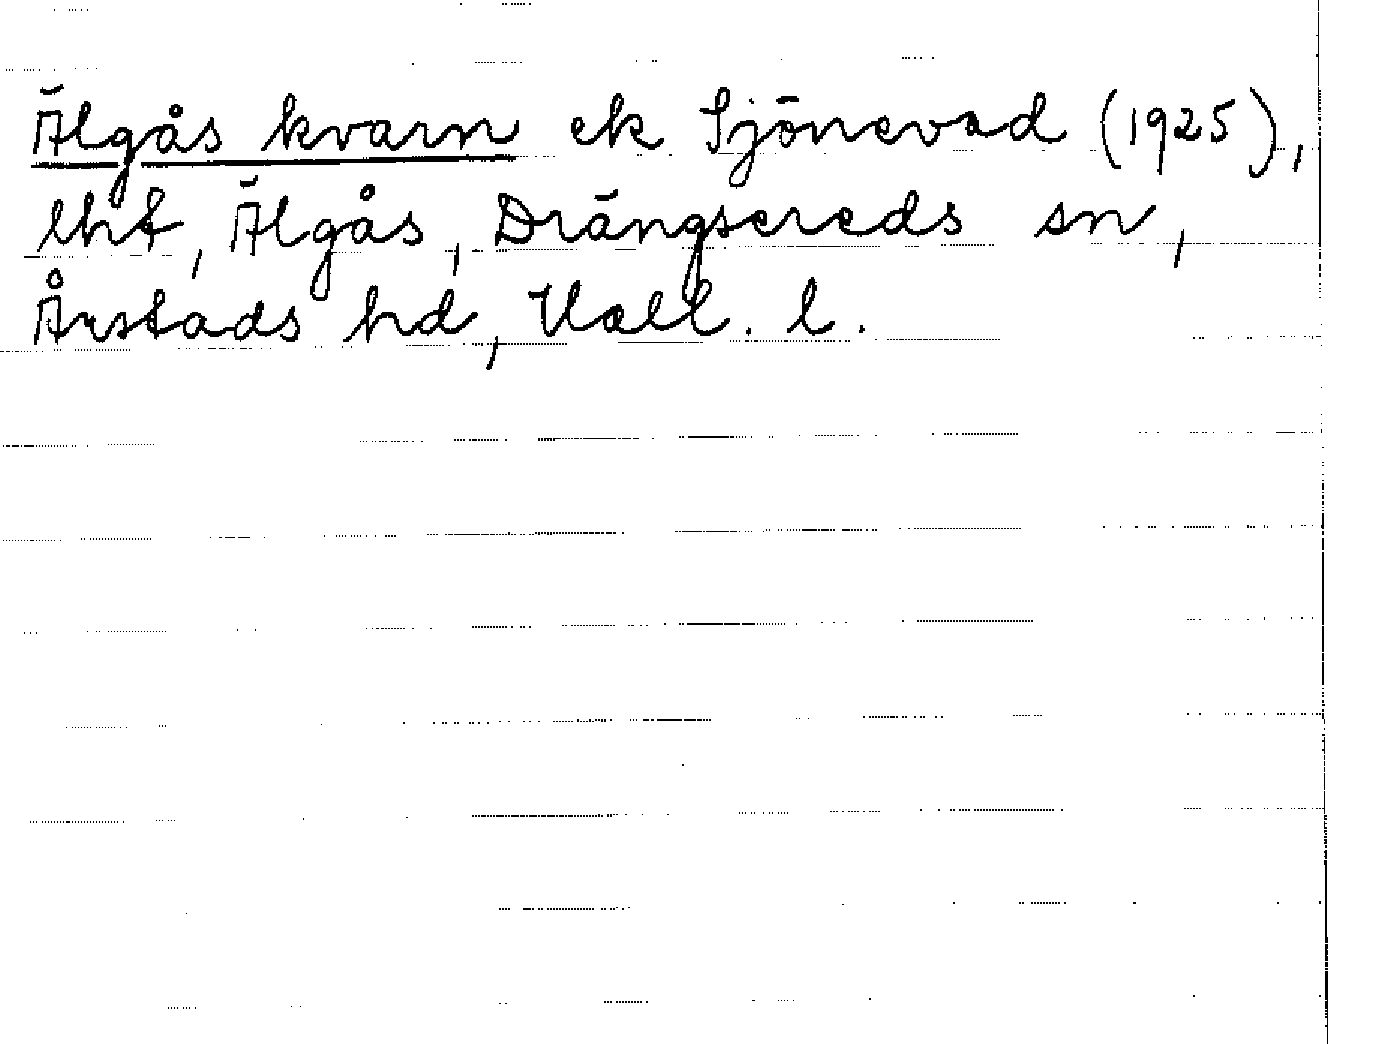 Älgås kvarn ek Sjönevad (1925),
lht, Älgås, Drängsereds sn,
Årstads hd, Hall. l.